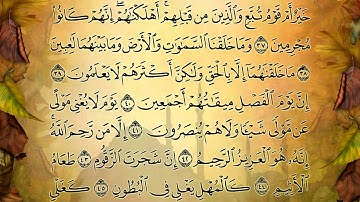 خَيْرٌ أَمْ قَوْمُ تُبَّعٍ وَالَّذِينَ مِن قَبْلِهِمْ أَهْلَكْنَاهُمْ إِنَّهُمْ كَانُوا
مُجْرِمِينَ ٣٧ وَمَا خَلَقْنَا السَّمَوَاتِ وَالْأَرْضَ وَمَا بَيْنَهُمَا لَاعِبِينَ
٣٨ مَا خَلَقْنَاهُمَا إِلَّا بِالْحَقِّ وَلَكِنَّ أَكْثَرَهُمْ لَا يَعْلَمُونَ ٣٩
إِنَّ يَوْمَ الْفَصْلِ مِيقَاتُهُمْ أَجْمَعِينَ ٤٠ يَوْمَ لَا يُغْنِي مَوْلًى
عَن مَّوْلًى شَيْئًا وَلَا هُمْ يُنصَرُونَ ٤١ إِلَّا مَن رَّحِمَ اللَّهُ
إِنَّهُ هُوَ الْعَزِيزُ الرَّحِيمُ ٤٢ إِنَّ شَجَرَتَ الزَّقُّومِ ٤٣ طَعَامُ
الْأَثِيمِ ٤٤ كَالْمُهْلِ يَغْلِي فِي الْبُطُونِ ٤٥ كَغَلْيِ